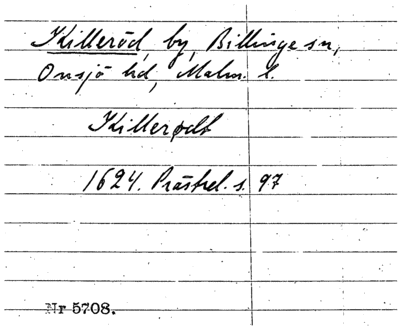 Killeröd, by, Billinge sn,
Onsjö hd, Malm. l.
Killerødt
1624. Prästrel. s. 97
Nr 5708.